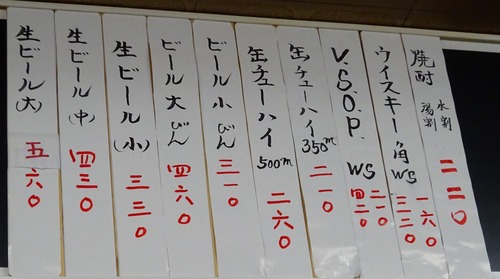 焼酎
水割
湯割
二二〇
ウイスキー角
WS
一六〇
三二〇
V.S.O.P.
WS
二一〇
四二〇
缶チューハイ
350ml
二一〇
缶チューハイ
500ml
二六〇
ビール小びん
三一〇
ビール大びん
四六〇
生ビール(小)
三三〇
生ビール(中)
四三〇
生ビール(大)
五六〇